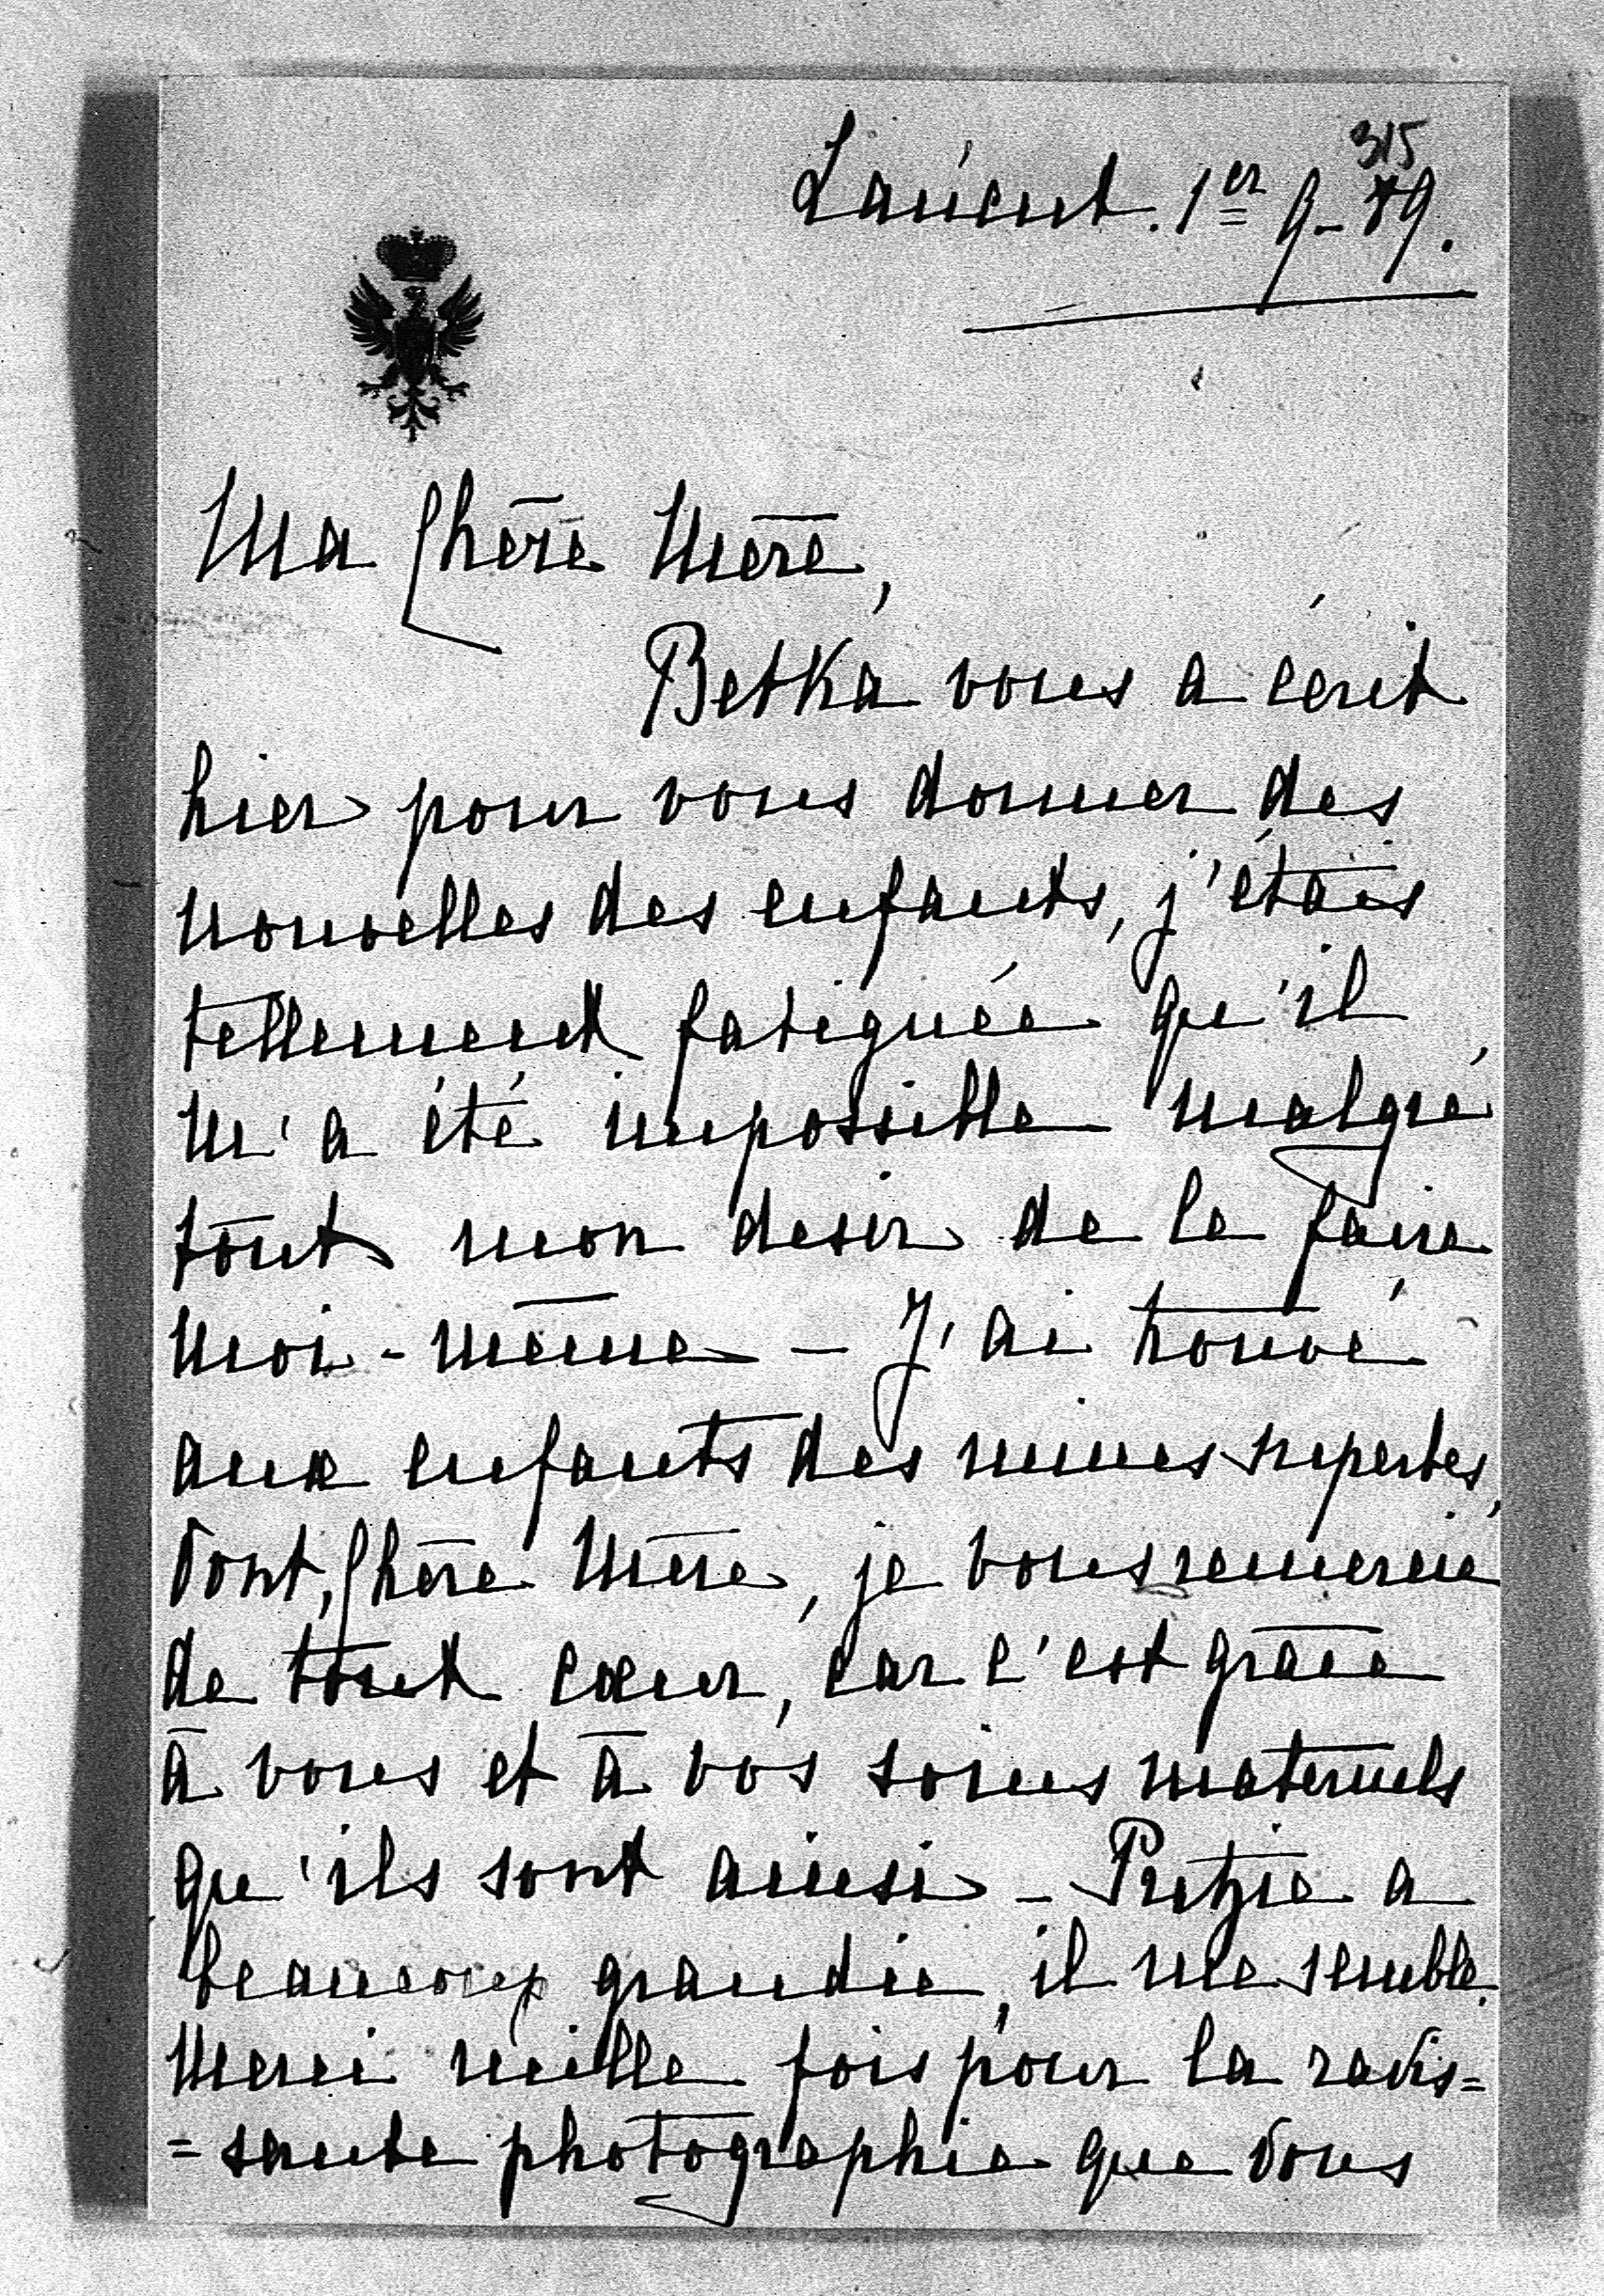 315
Laücut. 1er 9-79.
Ma Chère Mère,
Betka vous a écrit
hier pour vous donner des
nouvelles des enfants, j'étais
tellement fatiguée qu'il
m'a été impossible malgré
tout mon desir de le faire
moi-même – J'ai trouvé
aux enfants des mines superbes,
dont, Chère Mère, je vous remercie
de tout cœur, car c'est grâce
à vous et à vos soins maternels
qu'ils sont ainsi – a
beaucoup grandie, il me semble.
Merci mille fois pour la ravis=
=sante photographie que vous